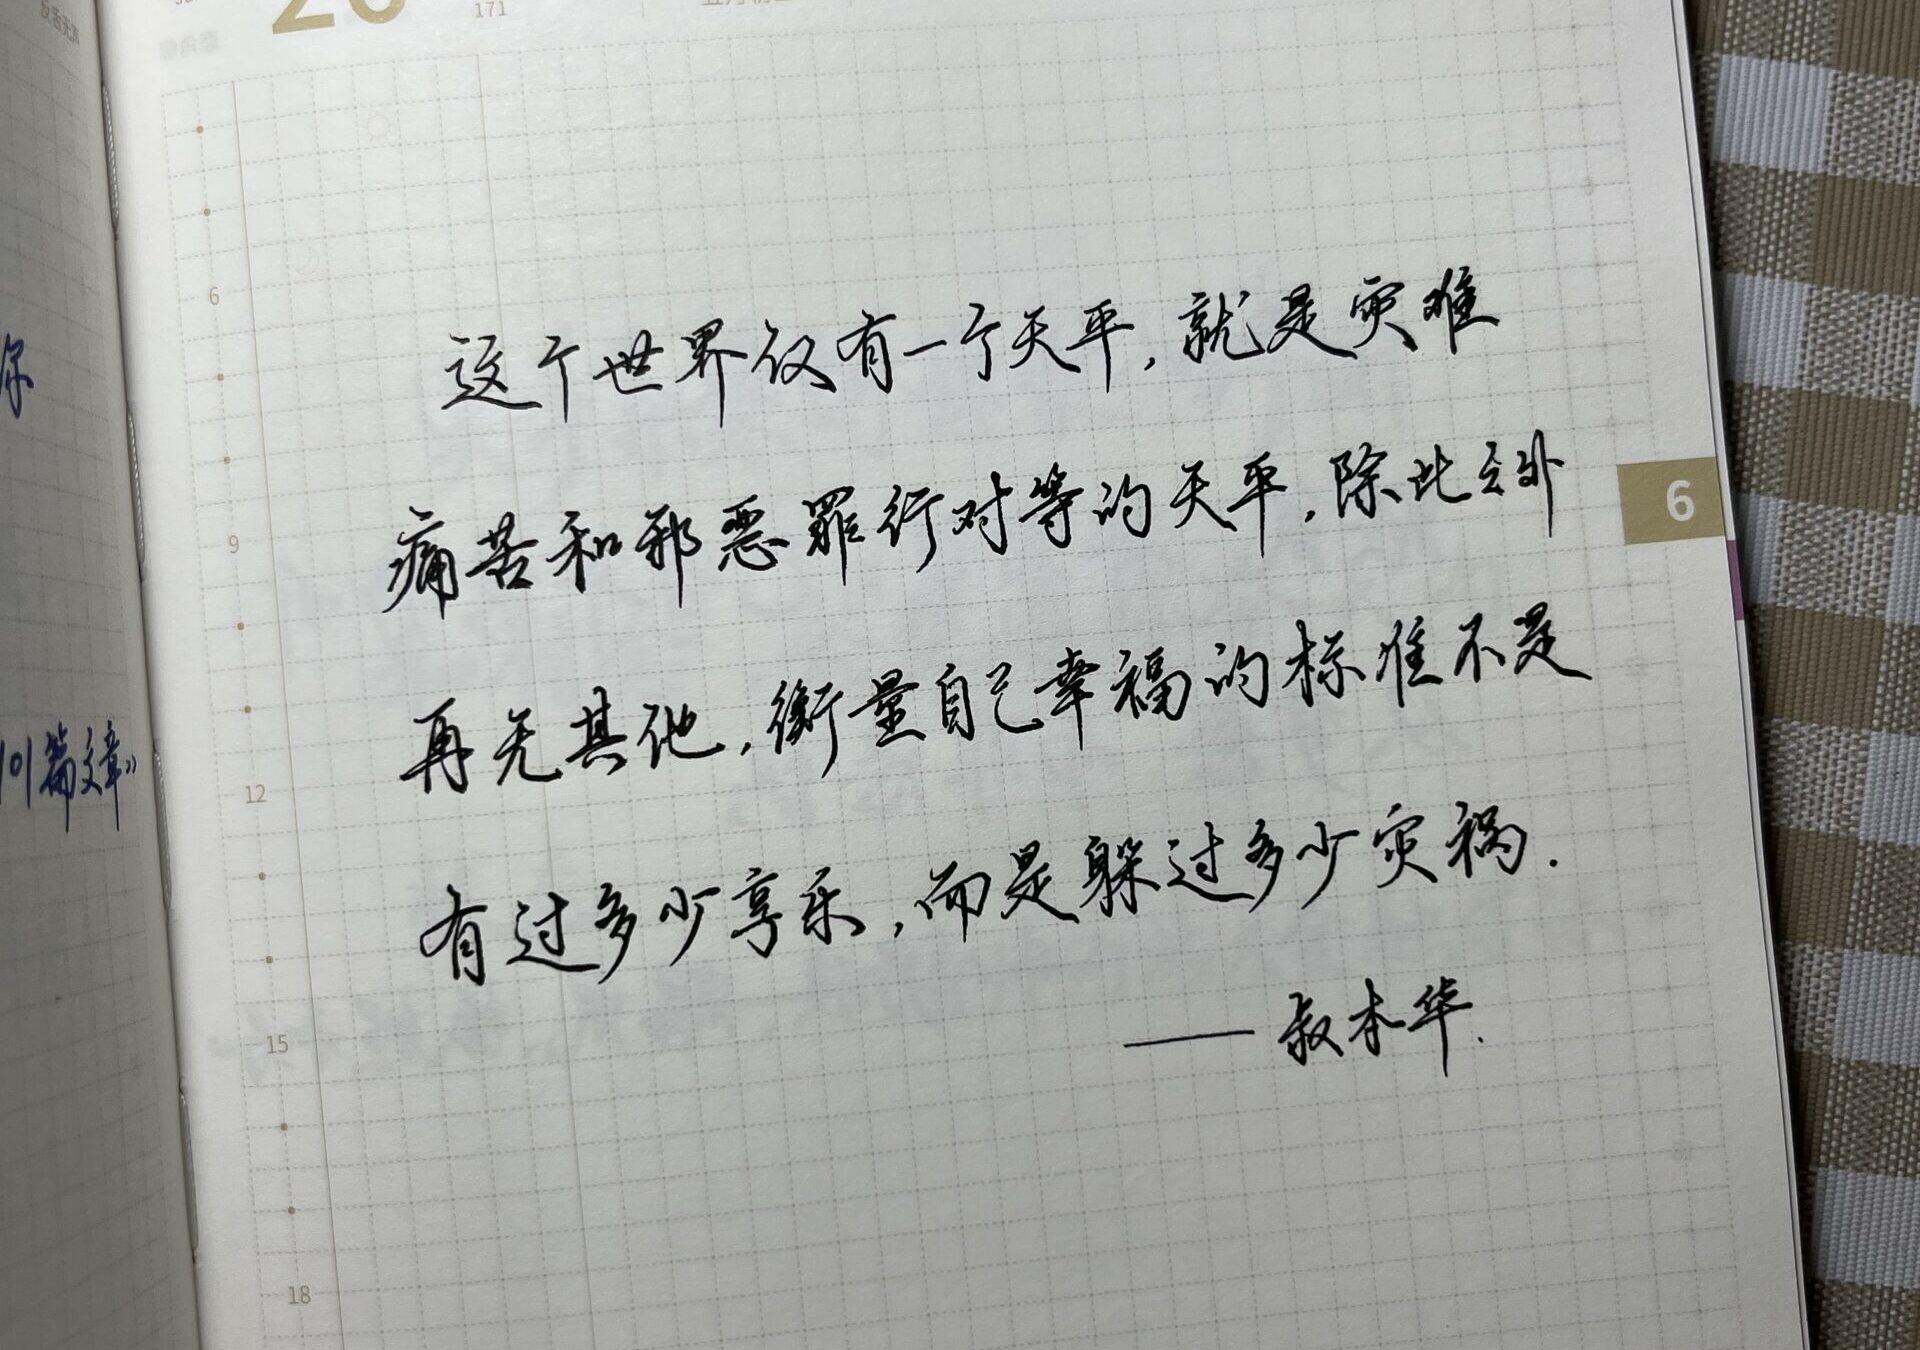 20
171
6
9
12
15
18
6
尔
101篇文章》
这个世界仅有一个天平,就是灾难
痛苦和邪恶罪行对等的天平,除此之外
再无其他,衡量自己幸福的标准不是
有过多少享乐,而是躲过多少灾祸.
——叔本华.